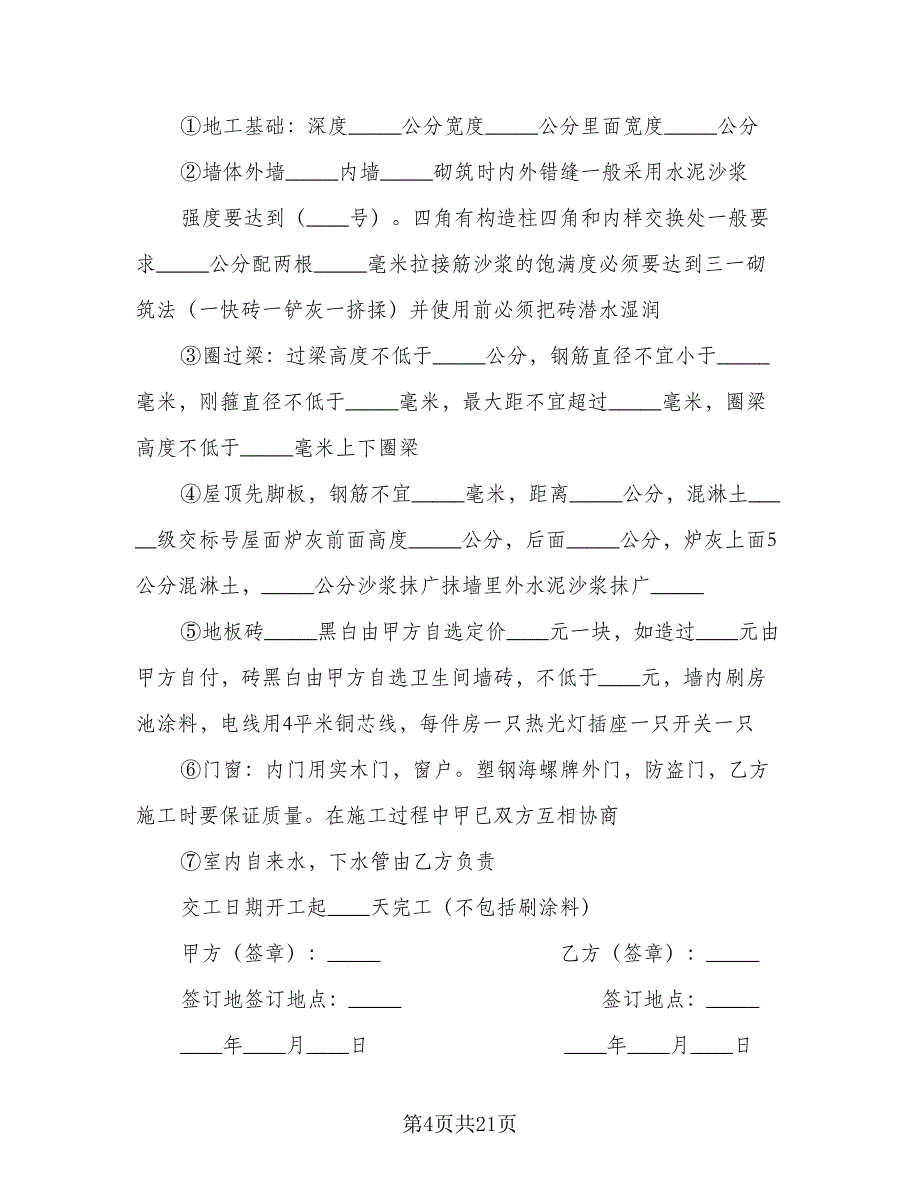 ①地工基础：深度_____公分宽度_____公分里面宽度_____公分
②墙体外墙_____内墙_____砌筑时内外错缝一般采用水泥沙浆
强度要达到（____号）。四角有构造柱四角和内样交换处一般要
求_____公分配两根_____毫米拉接筋沙浆的饱满度必须要达到三一砌
筑法（一快砖一铲灰一挤揉）并使用前必须把砖潜水湿润
③圈过梁：过梁高度不低于_____公分，钢筋直径不宜小于_____
毫米，刚箍直径不低于_____毫米，最大距不宜超过_____毫米，圈梁
高度不低于_____毫米上下圈梁
④屋顶先脚板，钢筋不宜_____毫米，距离_____公分，混淋土___
__级交标号屋面炉灰前面高度_____公分，后面_____公分，炉灰上面5
公分混淋土，_____公分沙浆抹广抹墙里外水泥沙浆抹广_____
⑤地板砖_____黑白由甲方自选定价____元一块，如造过____元由
甲方自付，砖黑白由甲方自选卫生间墙砖，不低于____元，墙内刷房
池涂料，电线用4平米铜芯线，每件房一只热光灯插座一只开关一只
⑥门窗：内门用实木门，窗户。塑钢海螺牌外门，防盗门，乙方
施工时要保证质量。在施工过程中甲已双方互相协商
⑦室内自来水，下水管由乙方负责
交工日期开工起____天完工（不包括刷涂料）
甲方（签章）：_____ 乙方（签章）：_____
签订地签订地点：_____ 签订地点：_____
____年____月____日 ____年____月____日
第4页共21页